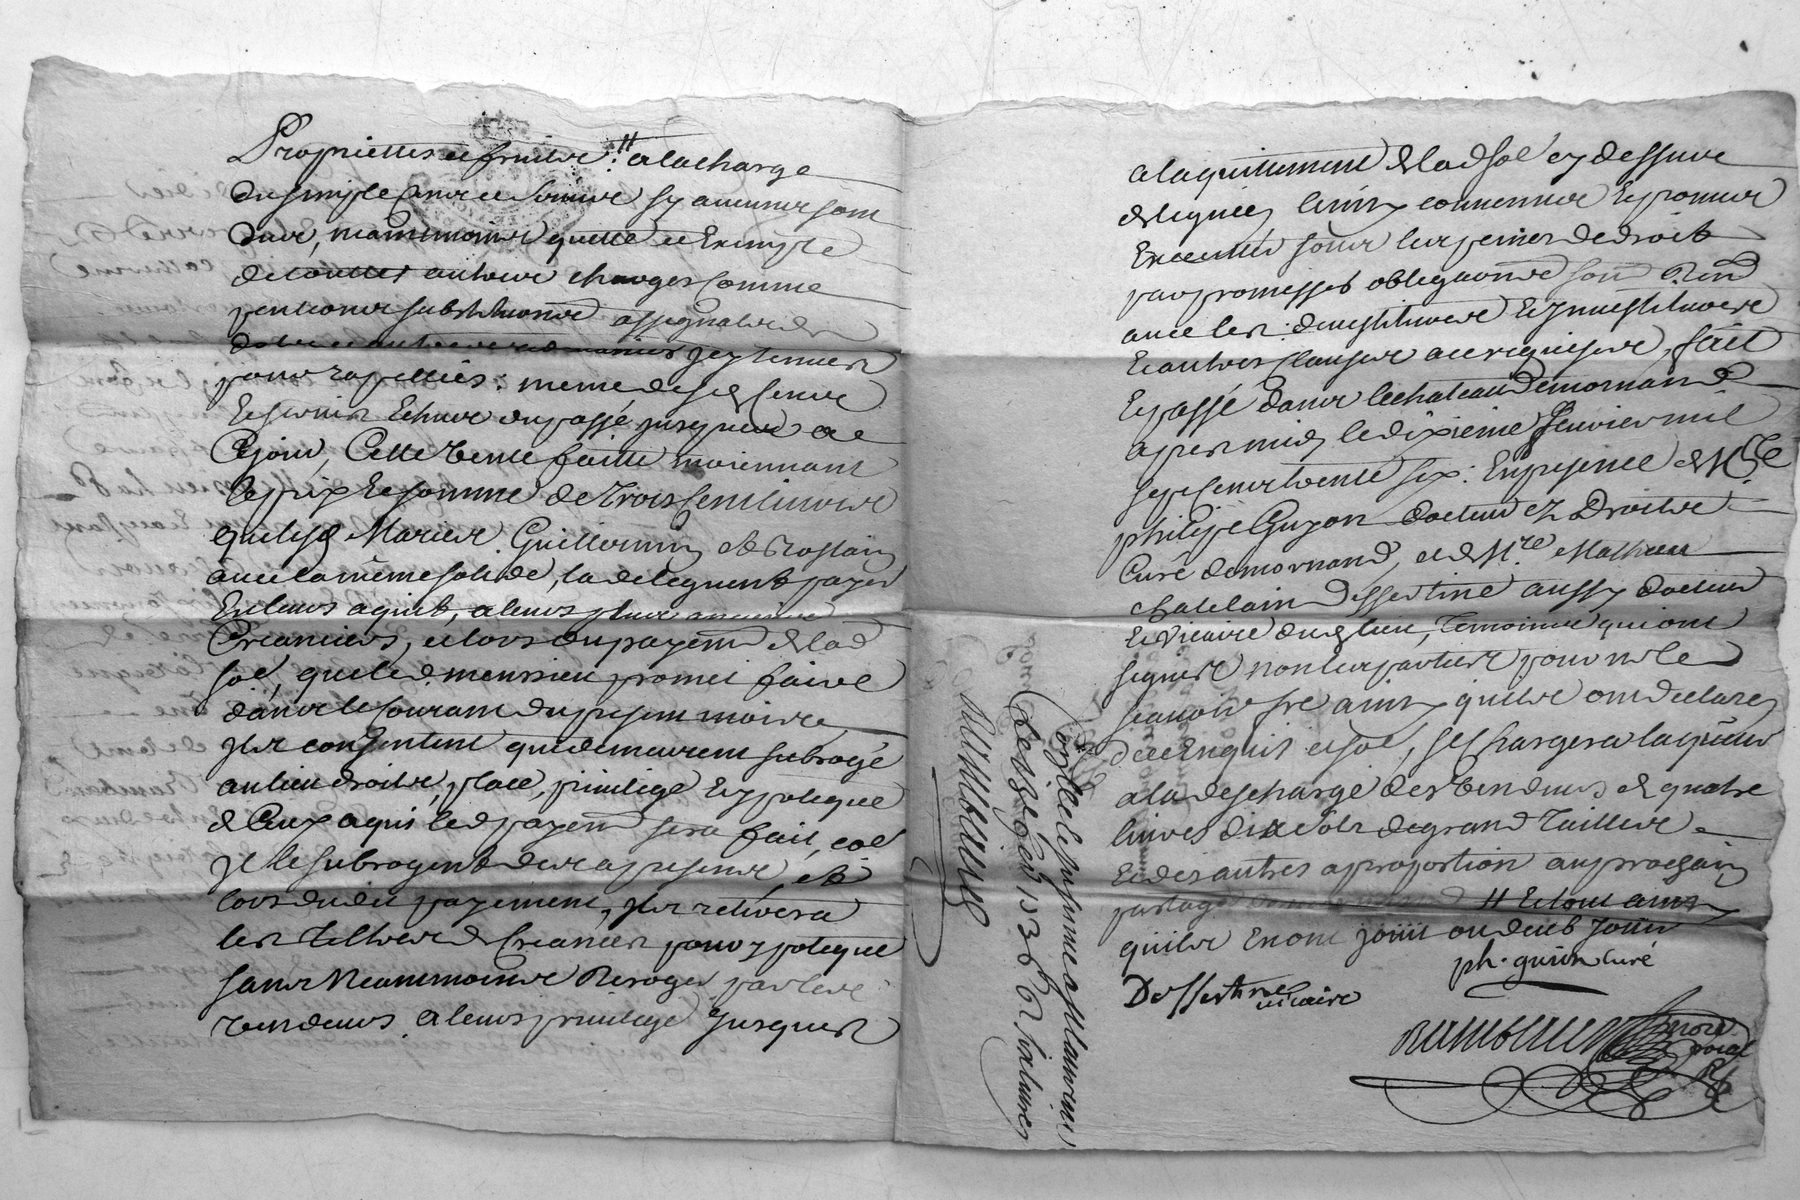 Proprietes et fruits : // a la charge
du simple cens et servis sy aucuns sont
deus, neanmoins quitte et Exempte
de touttes autres charges comme
pentions substitutions assignats de
dots et autres
pour rapellés : meme desd cens
Et servis Echus du passé jusques a
Cejour, Cette vente faitte moiennant
le prix Et somme de Trois Cent livres
que lesd Mariés Guillermin et Rostain
avec la même solide, la deleguent payer
En leurs aquit, a leurs plus anciens
Creanciers, et lors du payem de lad
soe, que led. monsieu promet faire
dans le courant du present mois
Ils consentent que demeurent subrogé
au lieu droits, place, privilege Et ypoteque
de Ceux a qui led payem sera fait, coe
Ils le subrogent des a present, et
lors dudit payement, Ils retirera
les Tiltres de Creances pour ypoteque
sans Neanmoins Deroger par les
vendeurs a leurs privilege jusques
a laquittement de lad soe cy dessus
deleguée, ainsy convenues Et promis
Executer sous les peines de droit
par promesses obligations soum Renon
avec les devestitures Et ynvestitures
Et autres clauses a ce requises, fait
Et passé dans le chateau de mornand
apres midy le dixieme Janvier mil
sept cent trente six : En presence de Mre
philipe Guyon docteur ez Droits
Curé de mornand, et de Mre Mathieu
chatelain dessertine aussy docteur
Et vicaire dud lieu, temoins qui ont
signés non les parties pour ne le
scavoir fre ainsy quils ont declaré
de ce Enquis et soe, se chargera laquereur
a la descharge des vendeurs de quatre
livres dix sols de grand Taille
Et des autres a proportion au prochain
partage // Et tout ainsy
quils En ont jouit ou deub jouir
ph. guion curé
Dessertine vicaire
Rambaud nore royal
Controllé
1736
Rambaud